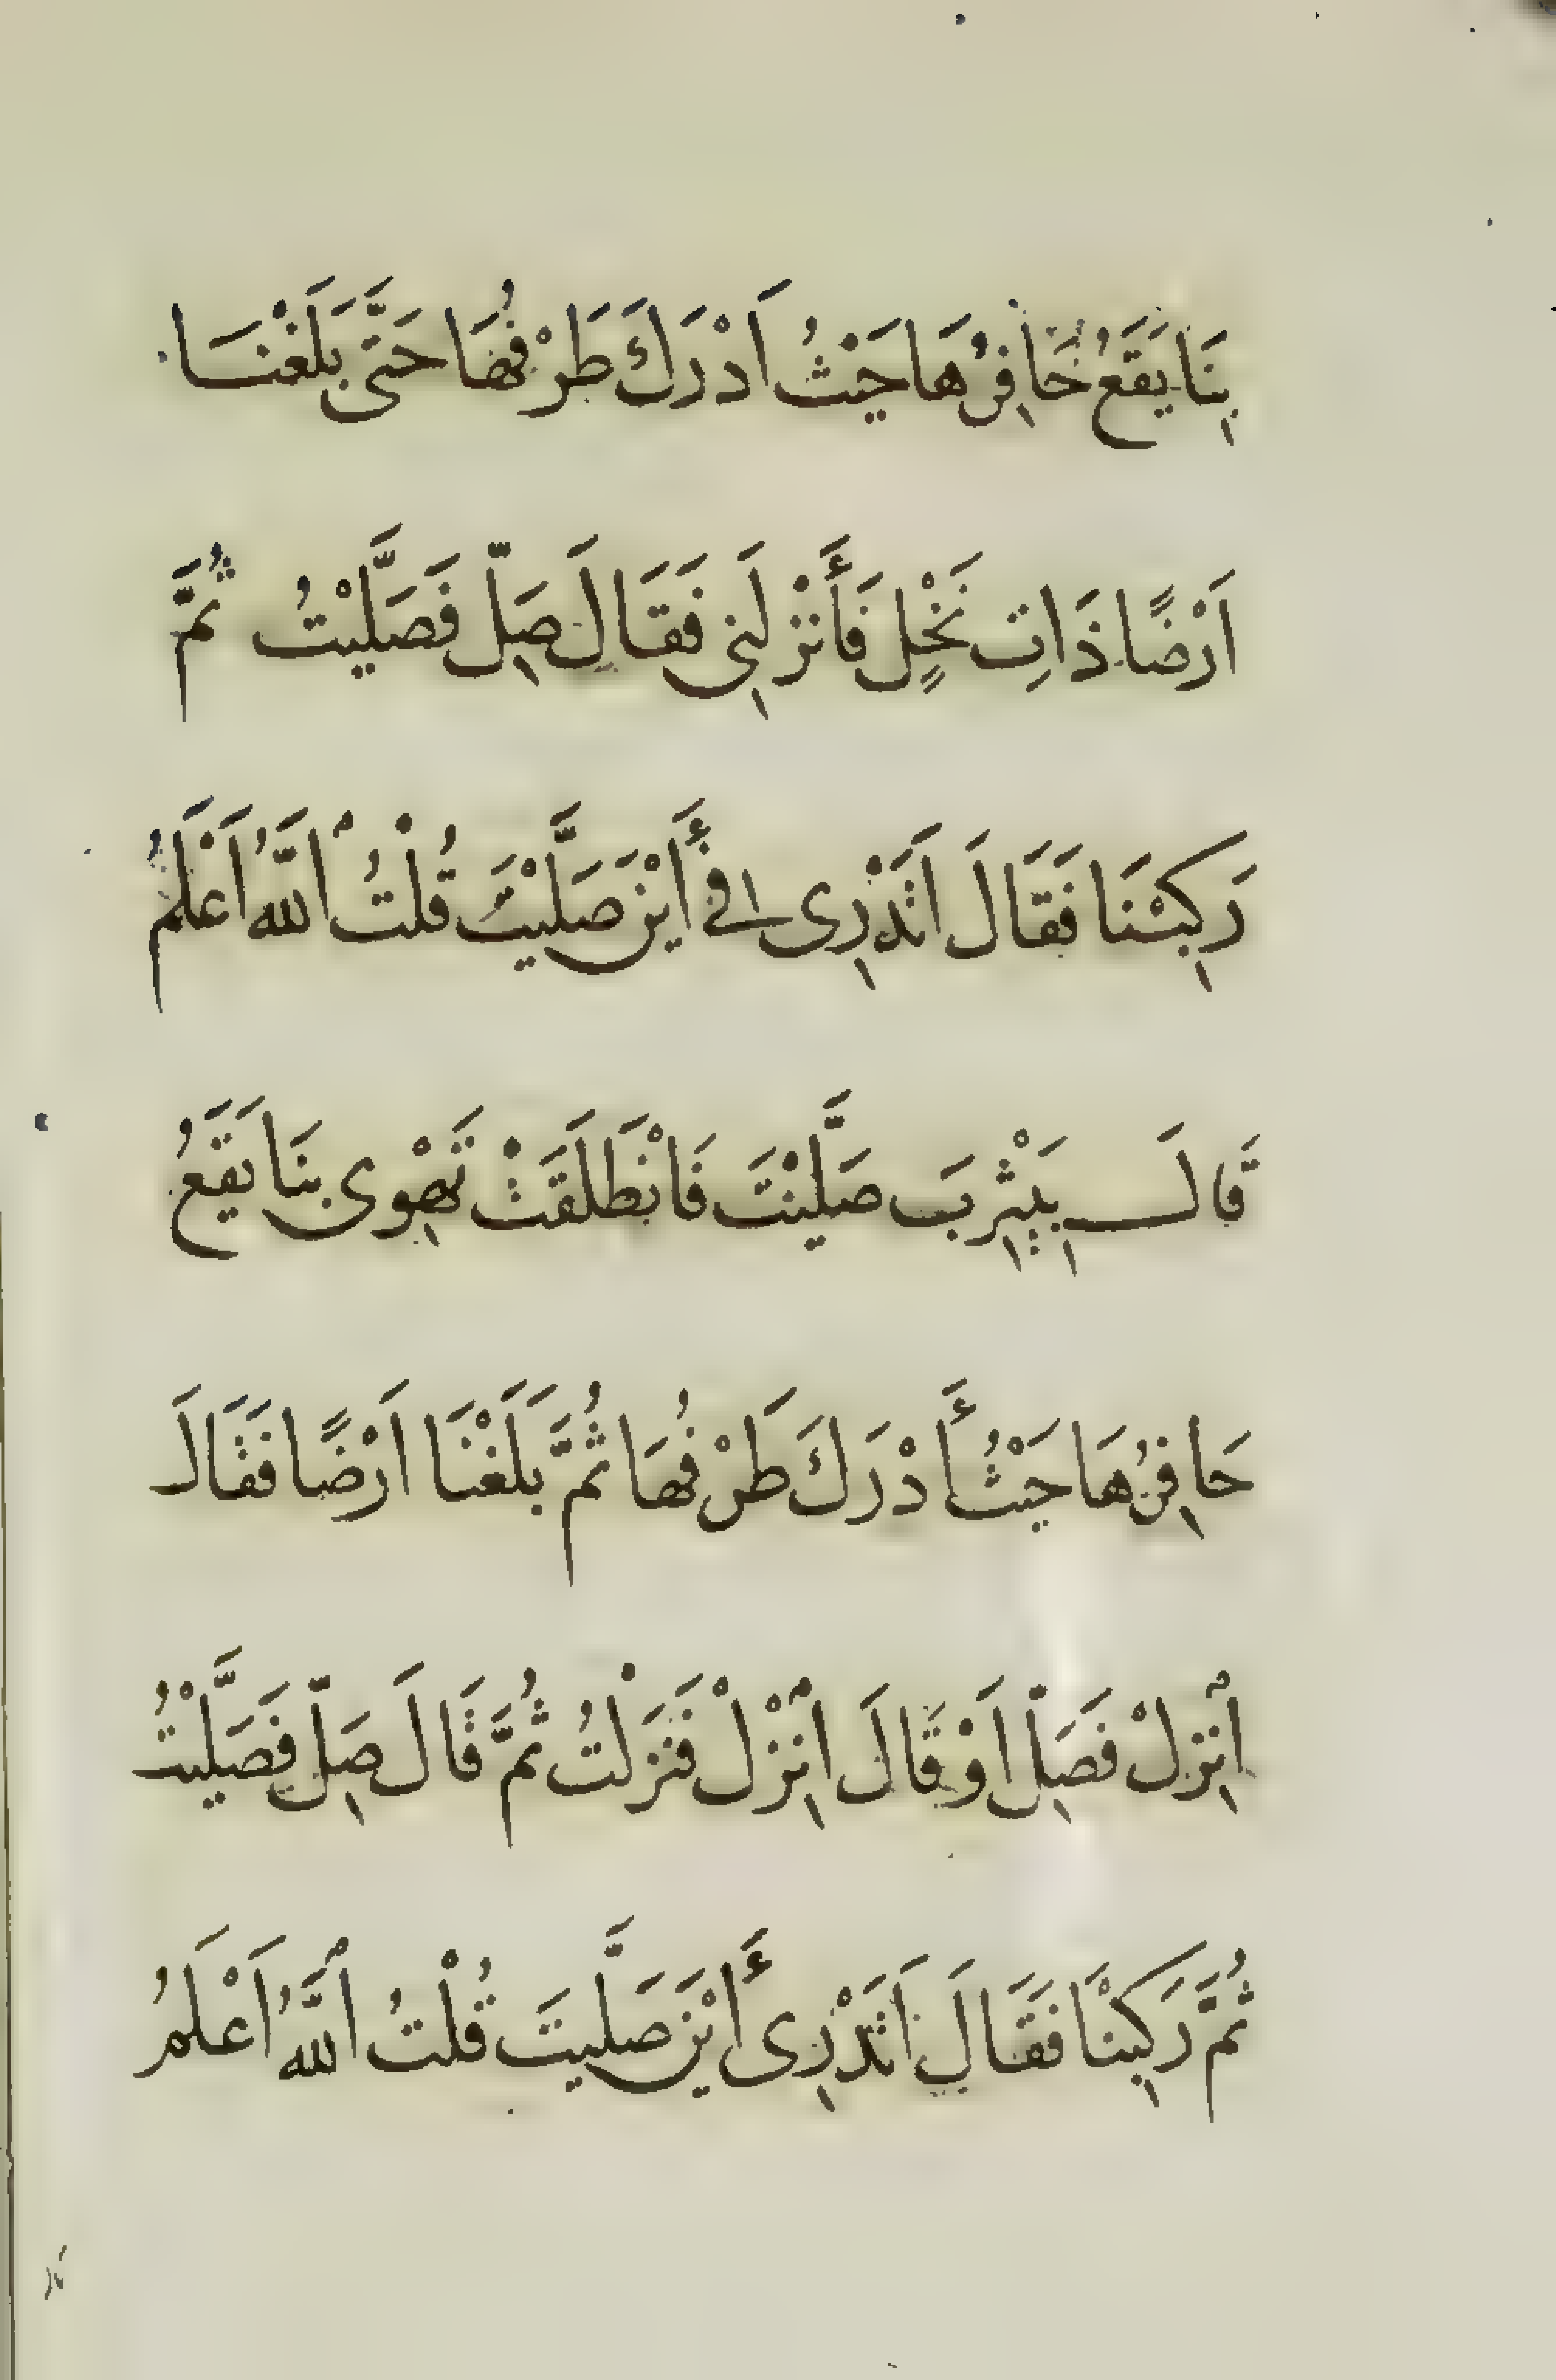 بِنَا يَقَعُ حَافِرُهَا حَيْثُ اَدْرَكَ طَرْفُهَا حَتَّى بَلَغْنَا
اَرْضًا ذَاتِ نَخْلٍ فَأَنْزَلَنِى فَقَالَ صَلِّ فَصَلَّيْتُ ثُمَّ
رَكِبْنَا فَقَالَ اَتَدْرِى افى أَيْنَ صَلَّيْتَ قُلْتُ اللهُ اَعْلَمُ
قَالَ بِيَثْرِبَ صَلَّيْتَ فَانْطَلَقَتْ تَهْوِى بِنَا يَقَعُ
حَافِرُهَا حَيْثُ أَدْرَكَ طَرْفُهَا ثُمَّ بَلَغْنَا اَرْضًا فَقَالَ
اِنْزِلْ فَصَلِّ اَوْ قَالَ اِنْزِلْ فَنَزَلْتُ ثُمَّ قَالَ صَلِّ فَصَلَّيْتُ
ثُمَّ رَكِبْنَا فَقَالَ اَتَدْرِى أَيْنَ صَلَّيْتَ قُلْتُ اللهُ اَعْلَمُ